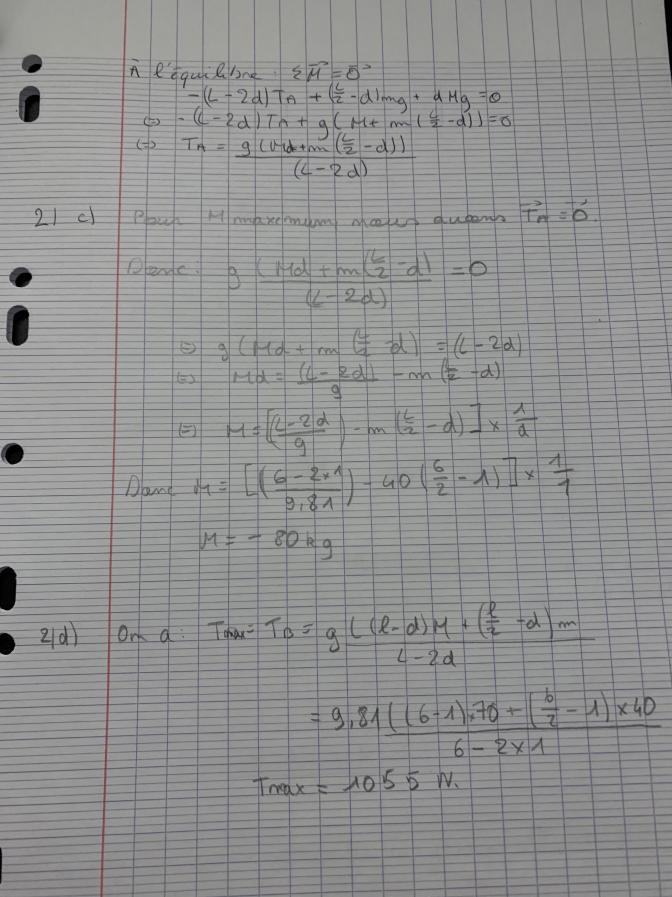 À l'équilibre : Σ M⃗ = 0⃗
-(L-2d)TA + (L/2 - d)mg + dMg = 0
⇔ -(L-2d)TA + g(M + m(L/2 - d)) = 0
⇔ TA = g(Md + m(L/2 - d)) / (L-2d)
2) c) Pour M maximum nous avons T⃗A = 0⃗.
Donc : g (Md + m(L/2 - d) / (L-2d) = 0
⇔ g(Md + m (L/2 - d) = (L-2d)
⇔ Md = (L-2d) / g - m(L/2 - d)
⇔ M = [(L-2d / g) - m(L/2 - d)] × 1/d
Donc M = [(6-2×1 / 9,81) - 40(6/2 - 1)] × 1/1
M = -80 kg
2)d) On a : Tmax = TB = g((l-d)M + (l/2 - d)m / L-2d
= 9,81((6-1)×70 + (6/2 - 1)×40 / 6-2×1
Tmax = 1055 N.